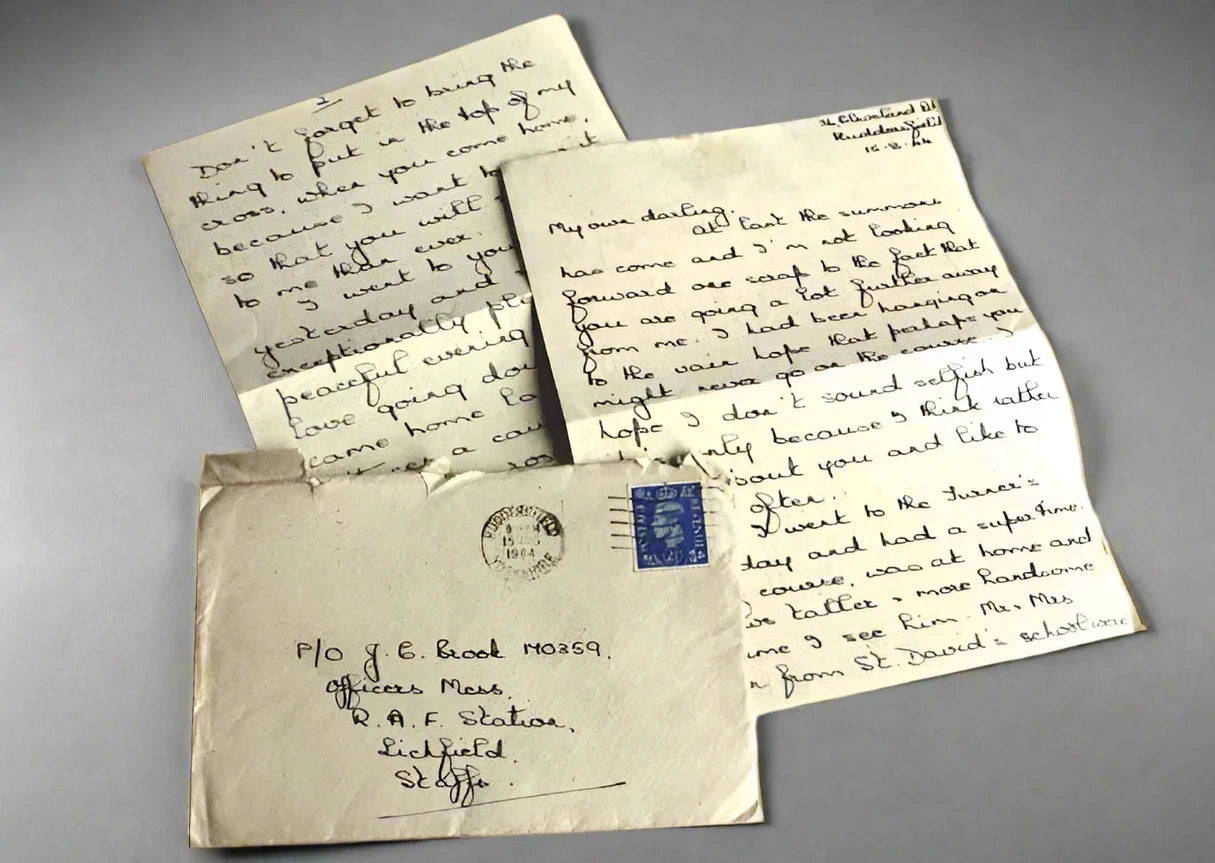 2
Don't forget to bring the
thing to put in the top of my
cross, when you come home,
because I want to it
so that you will
to me than ever.
I went to you
yesterday and
exceptionally
peaceful evening
love going
came home
a
Cleveland Rd
Huddersfield
15.8.44
My own darling,
At last the summons
has come and I'm not looking
forward one scrap to the fact that
you are going a lot further away
from me. I had been hanging on
to the vain hope that perhaps you
might never go on the course. I
hope I don't sound selfish but
only because I think rather
about you and like to
often.
I went to the Turner's
day and had a super time.
course, was at home and
taller & more handsome
time I see him. Mr. Mrs
from St. David's school were
HUDDERSFIELD
15 AUG
1944
YORKSHIRE
POSTAGE
REVENUE
P/O J. E. Brook M0359,
Officers Mess,
R.A.F. Station,
Lichfield,
Staffs.